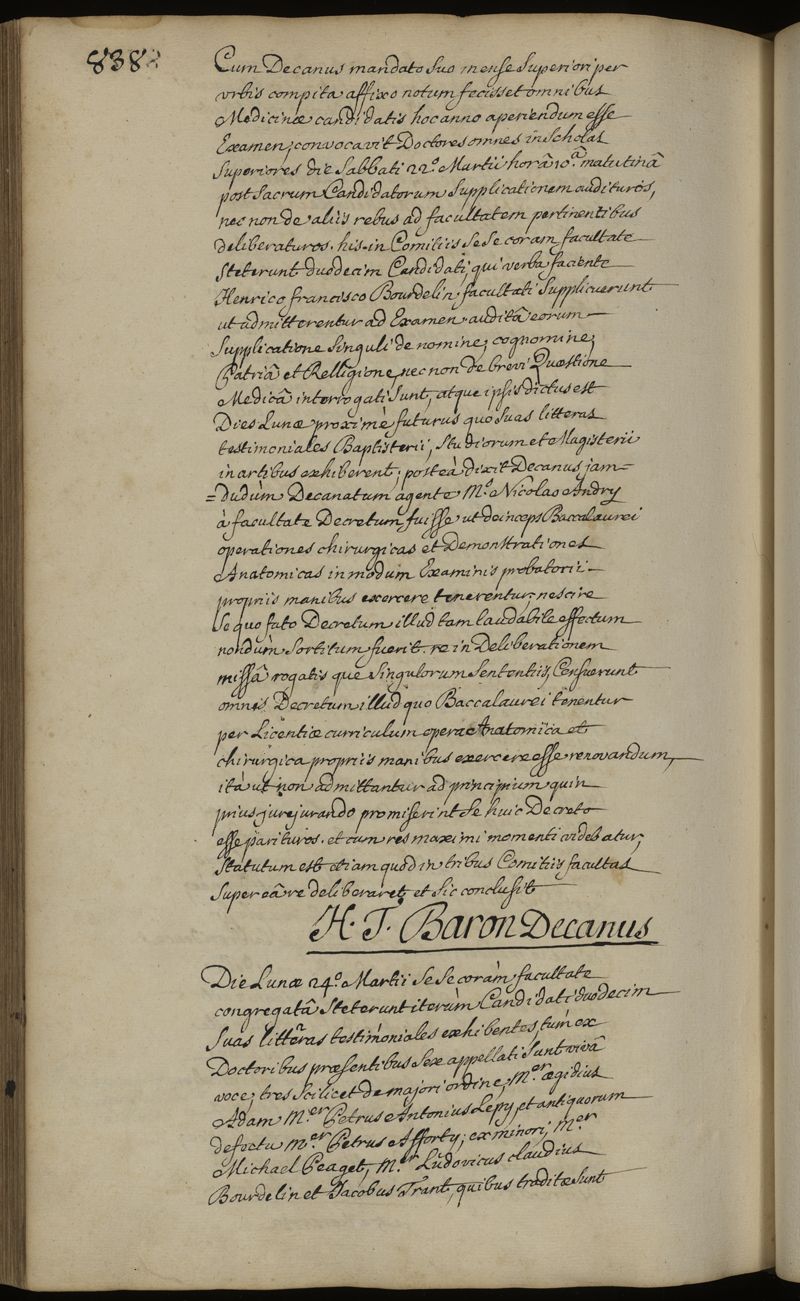 838
Cum Decanus mandato suo mense superiori per
vrbis compita affixo notum fecisset omnibus
Medicinæ candidatis hoc anno aperiendum esse
Examen, convocavit Doctores omnes in scholas
superiores die sabbati 22.º Martii horâ 10.ª matutinâ
post sacrum Candidatorum supplicationem audituros,
nec non de aliis rebus ad facultatem pertinentibus
deliberaturos. his in Comitiis sese coram facultate
steterunt duodecim Candidati, qui verba faciente
Henrico francisco Bourdelin facultati supplicuerunt
ut admitterentur ad Examen. auditâ eorum
supplicatione singuli de nomine, cognomine,
Patriâ et Relligione, nec non de brevi Quæstione
Medicâ interrogati sunt, atque ipsis dictus est
Dies Lunæ proximè futurus quo suas litteras
testimoniales Baptisterii, studiorum et Magisterii
in artibus exhiberent; posteà dixit Decanus jam
=dudùm Decanatum agente M.º Nicolao Andry
à facultate Decretum fuisse ut deinceps Baccalaurei
operationes chirurgicas et Demonstrationes
Anatomicas in modum Examinis probatorii
propriis manibus exercere tenerentur, nescire
se quo fato Decretum illud tam laudabile effectum
nondùm sortitum fuerit. re in Deliberationem
missâ rogatis que singulorum sententiis, Censuerunt
omnes Decretum illud quo Baccalaurei tenentur
per Licentiæ curriculum opera Anatomica et
chirurgica propriis manibus exercere esse renovandum,
ità ut non admittantur ad principium quin
prius jurejurando promiserint se huic Decreto
esse parituros. et cum res maximi momenti videbatur,
statutum est etiam quod in tribus Comitiis facultas
super eâ re deliberaret et sic conclusit
H. T. Baron Decanus
Die Lunæ 24.º Martii sese coràm facultate
congregatâ steterunt iterùm Candidati duodecim
suas litteras testimoniales exhibentes, tùm ex
Doctoribus præsentibus sex appellati sunt vivâ
voce, tres scilicet de majori ordine, M.er ægidius
Adam M.er Petrus Antonius Lepy, et antiquorum
defectu M.er Petrus Afforty; ex minori, M.er
Michael Peaget, M.er Ludovicus claudius
Bourdelin et Jacobus Trant, quibus traditæ sunt